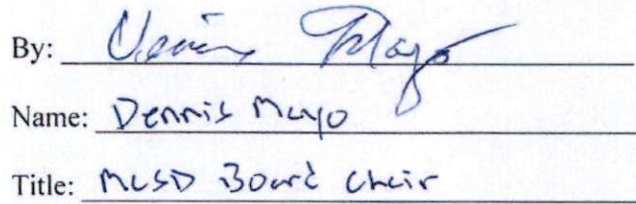 By: Dennis Mayo
Name: Dennis Mayo
Title: MCSD Board Chair